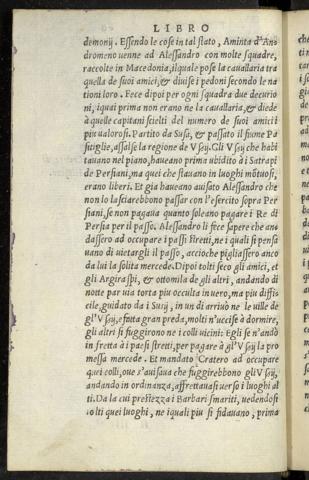 LIBRO
demonij. Essendo le cose in tal stato, Aminta d'An‍
dromeno uenne ad Alessandro con molte squadre,
raccolte in Macedonia, il quale pose la cauallaria tra
quella de suoi amici, & diuise i pedoni secondo le na
tioni loro. Fece dipoi per ogni squadra due decurio
ni, i quai prima non erano ne la cauallaria, & diede
à quelle capitani scielti del numero de suoi amici i
piu ualorosi. Partito da Susa, & passato il fiume Pa
sitiglie, assalse la regione de V sij. Gli V sij che habi
tauano nel piano, haueano prima ubidito à i Satrapi
de Persia, ma quei che stauano in luoghi mõtuosi,
erano liberi. Et gia haueano auisato Alessandro che
non lo lasciarebbono passar con l'esercito sopra Per
siani, se non pagaua quanto soleano pagare i Re di
Persia per il passo. Alessandro li fece sapere che an
dassero ad occupare i passi stretti, ne i quali si pensa
uano di uietargli il passo, accioche pigliassero anco
da lui la solita mercede. Dipoi tolti seco gli amici, et
gli Argiraspi, & ottomila de gli altri, andando di
notte par uia torta piu occulta in uero, ma piu diffi‍
cile, guidato da i Susij, in un dì arriuò ne le uille de
gl'V sij, e fatta gran preda, molti n'uccise à dormire,
gli altri si fuggirono ne i colli uicini: Egli se n'andò
in fretta à i passi stretti, per pagare à gl'V sij la pro
messa mercede. Et mandato Cratero ad occupare
quei colli, oue s'auisaua che fuggirebbono gli V sij,
andando in ordinanza, affrettauasi uerso i luoghi al
ti. Da la cui prestezza i Barbari smariti, uedendosi
tolti quei luoghi, ne i quali piu si fidauano, prima